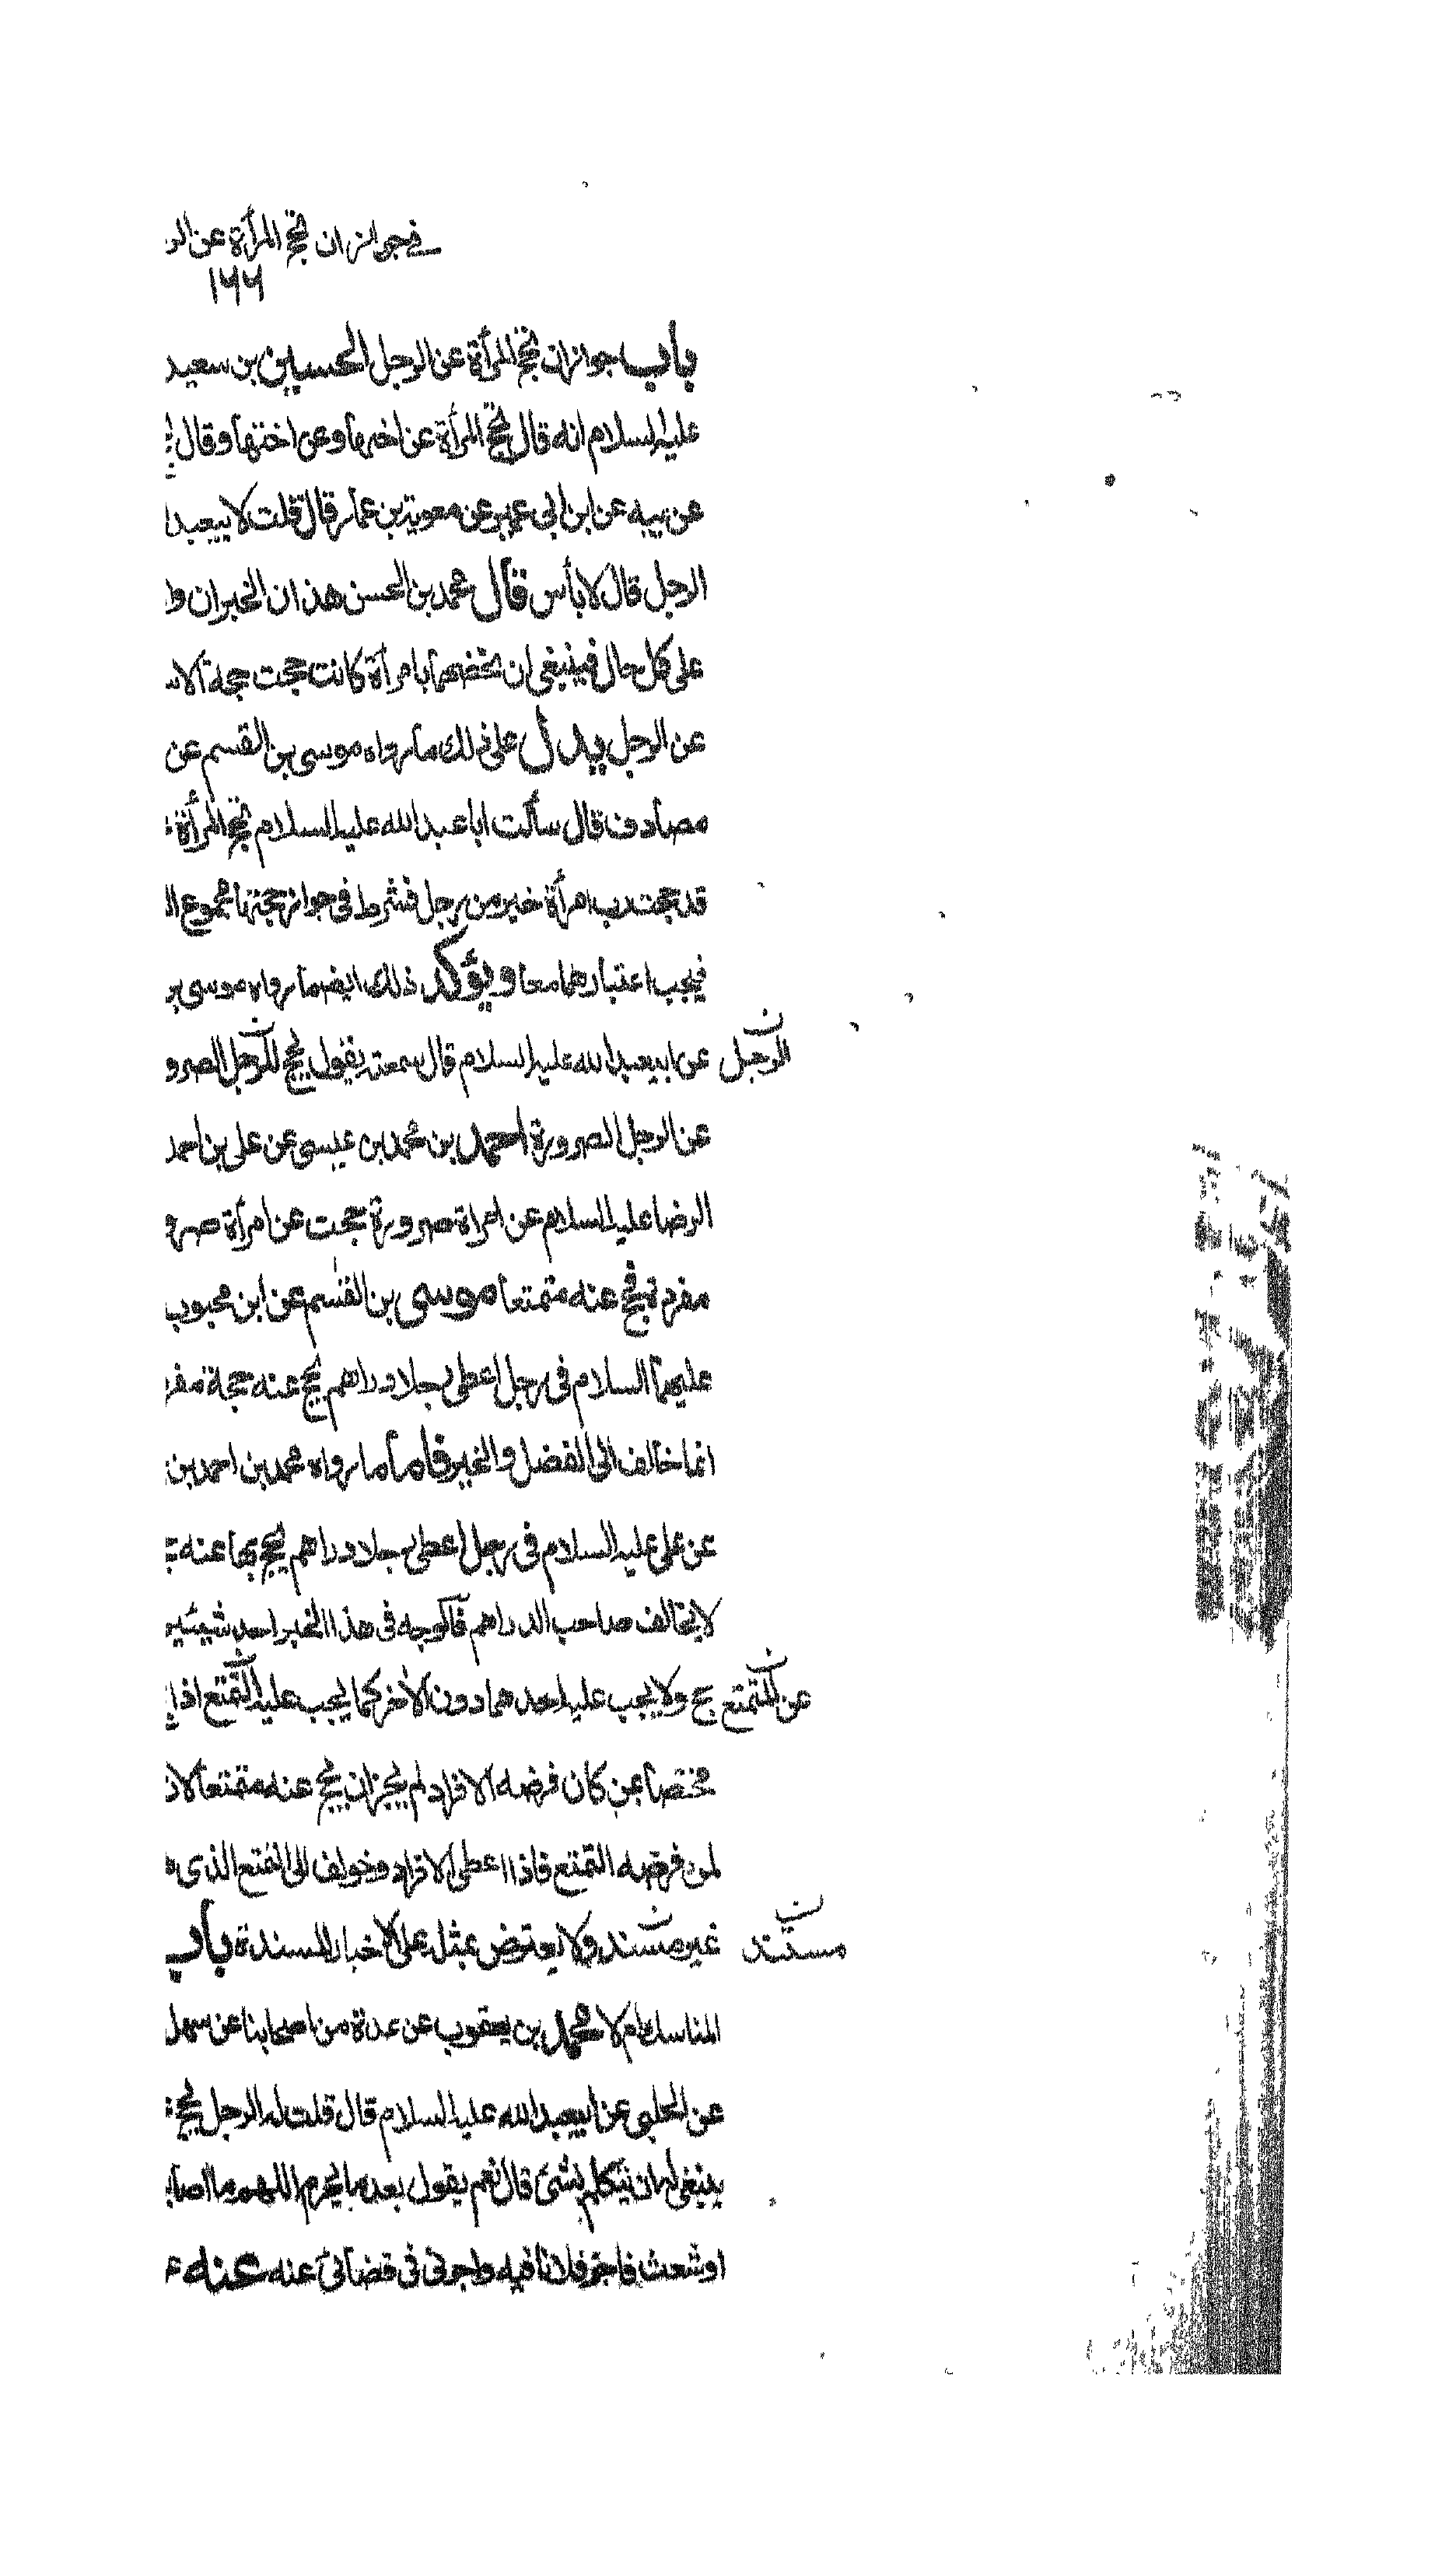 في جواز ان تحج المرأة عن الر
١٦٦
باب جواز ان تحج المرأة عن الرجل الحسين بن سعيد
عليه السلام انه قال تحج المرأة عن اخيها وعن اختها وقال
عن ابيه عن ابن ابي عمير عن معوية بن عمار قال قلت لابيعبد
الرجل قال لا بأس قال محمد بن الحسن هذان الخبران و
على كل حال فينبغي ان نخصهما بامرأة كانت حجت حجة الاس
عن الرجل يدل على ذلك ما رواه موسى بن القسم عن
مصادف قال سألت ابا عبد الله عليه السلام تحج المرأة
قد حجت رب امرأة خير من رجل فشرط في جواز حجتها مجموع ال
فيجب اعتبارهما معا ويؤكد ذلك ايضا ما رواه موسى بن
عن ابيعبد الله عليه السلام قال سمعته يقول يحج الرجل الصرو
الرجل ن
عن الرجل الصرورة احمد بن محمد بن عيسى عن علي بن احمد
الرضا عليه السلام عن امراة صرورة حجت عن امرأة صرو
مفرد يحج عنه متمتعا موسى بن القسم عن ابن محبوب
عليهما السلام في رجل اعطى رجلا دراهم يحج عنه حجة مفر
انما خالف الى الفضل والخير فاما ما رواه محمد بن احمد بن
عن علي عليه السلام في رجل اعطى رجلا دراهم يحج بها عنه
لا يخالف صاحب الدراهم فالوجه في هذا الخبر احد شيئين
حج ولا يجب عليه احدهما دون الآخر كما يجب عليه التمتع اذا
عن المتمتع ن
مختصا بمن كان فرضه الافراد لم يجز ان يحج عنه متمتعا لان
لمن فرضه التمتع فاذا اعطى الافراد وخولف الى التمتع الذي ه
غير مسند ولا يعترض بمثله على الاخبار المسندة باب
مستند ن
المناسك ام لا محمد بن يعقوب عن عدة من اصحابنا عن سهل
عن الحلبي عن ابيعبد الله عليه السلام قال قلت له الرجل يحج
ينبغي له ان يتكلم بشئ قال نعم يقول بعد ما يحرم اللهم ما اصاب
او شعث فاجر فلانا فيه واجرني في قضائي عنه عنه